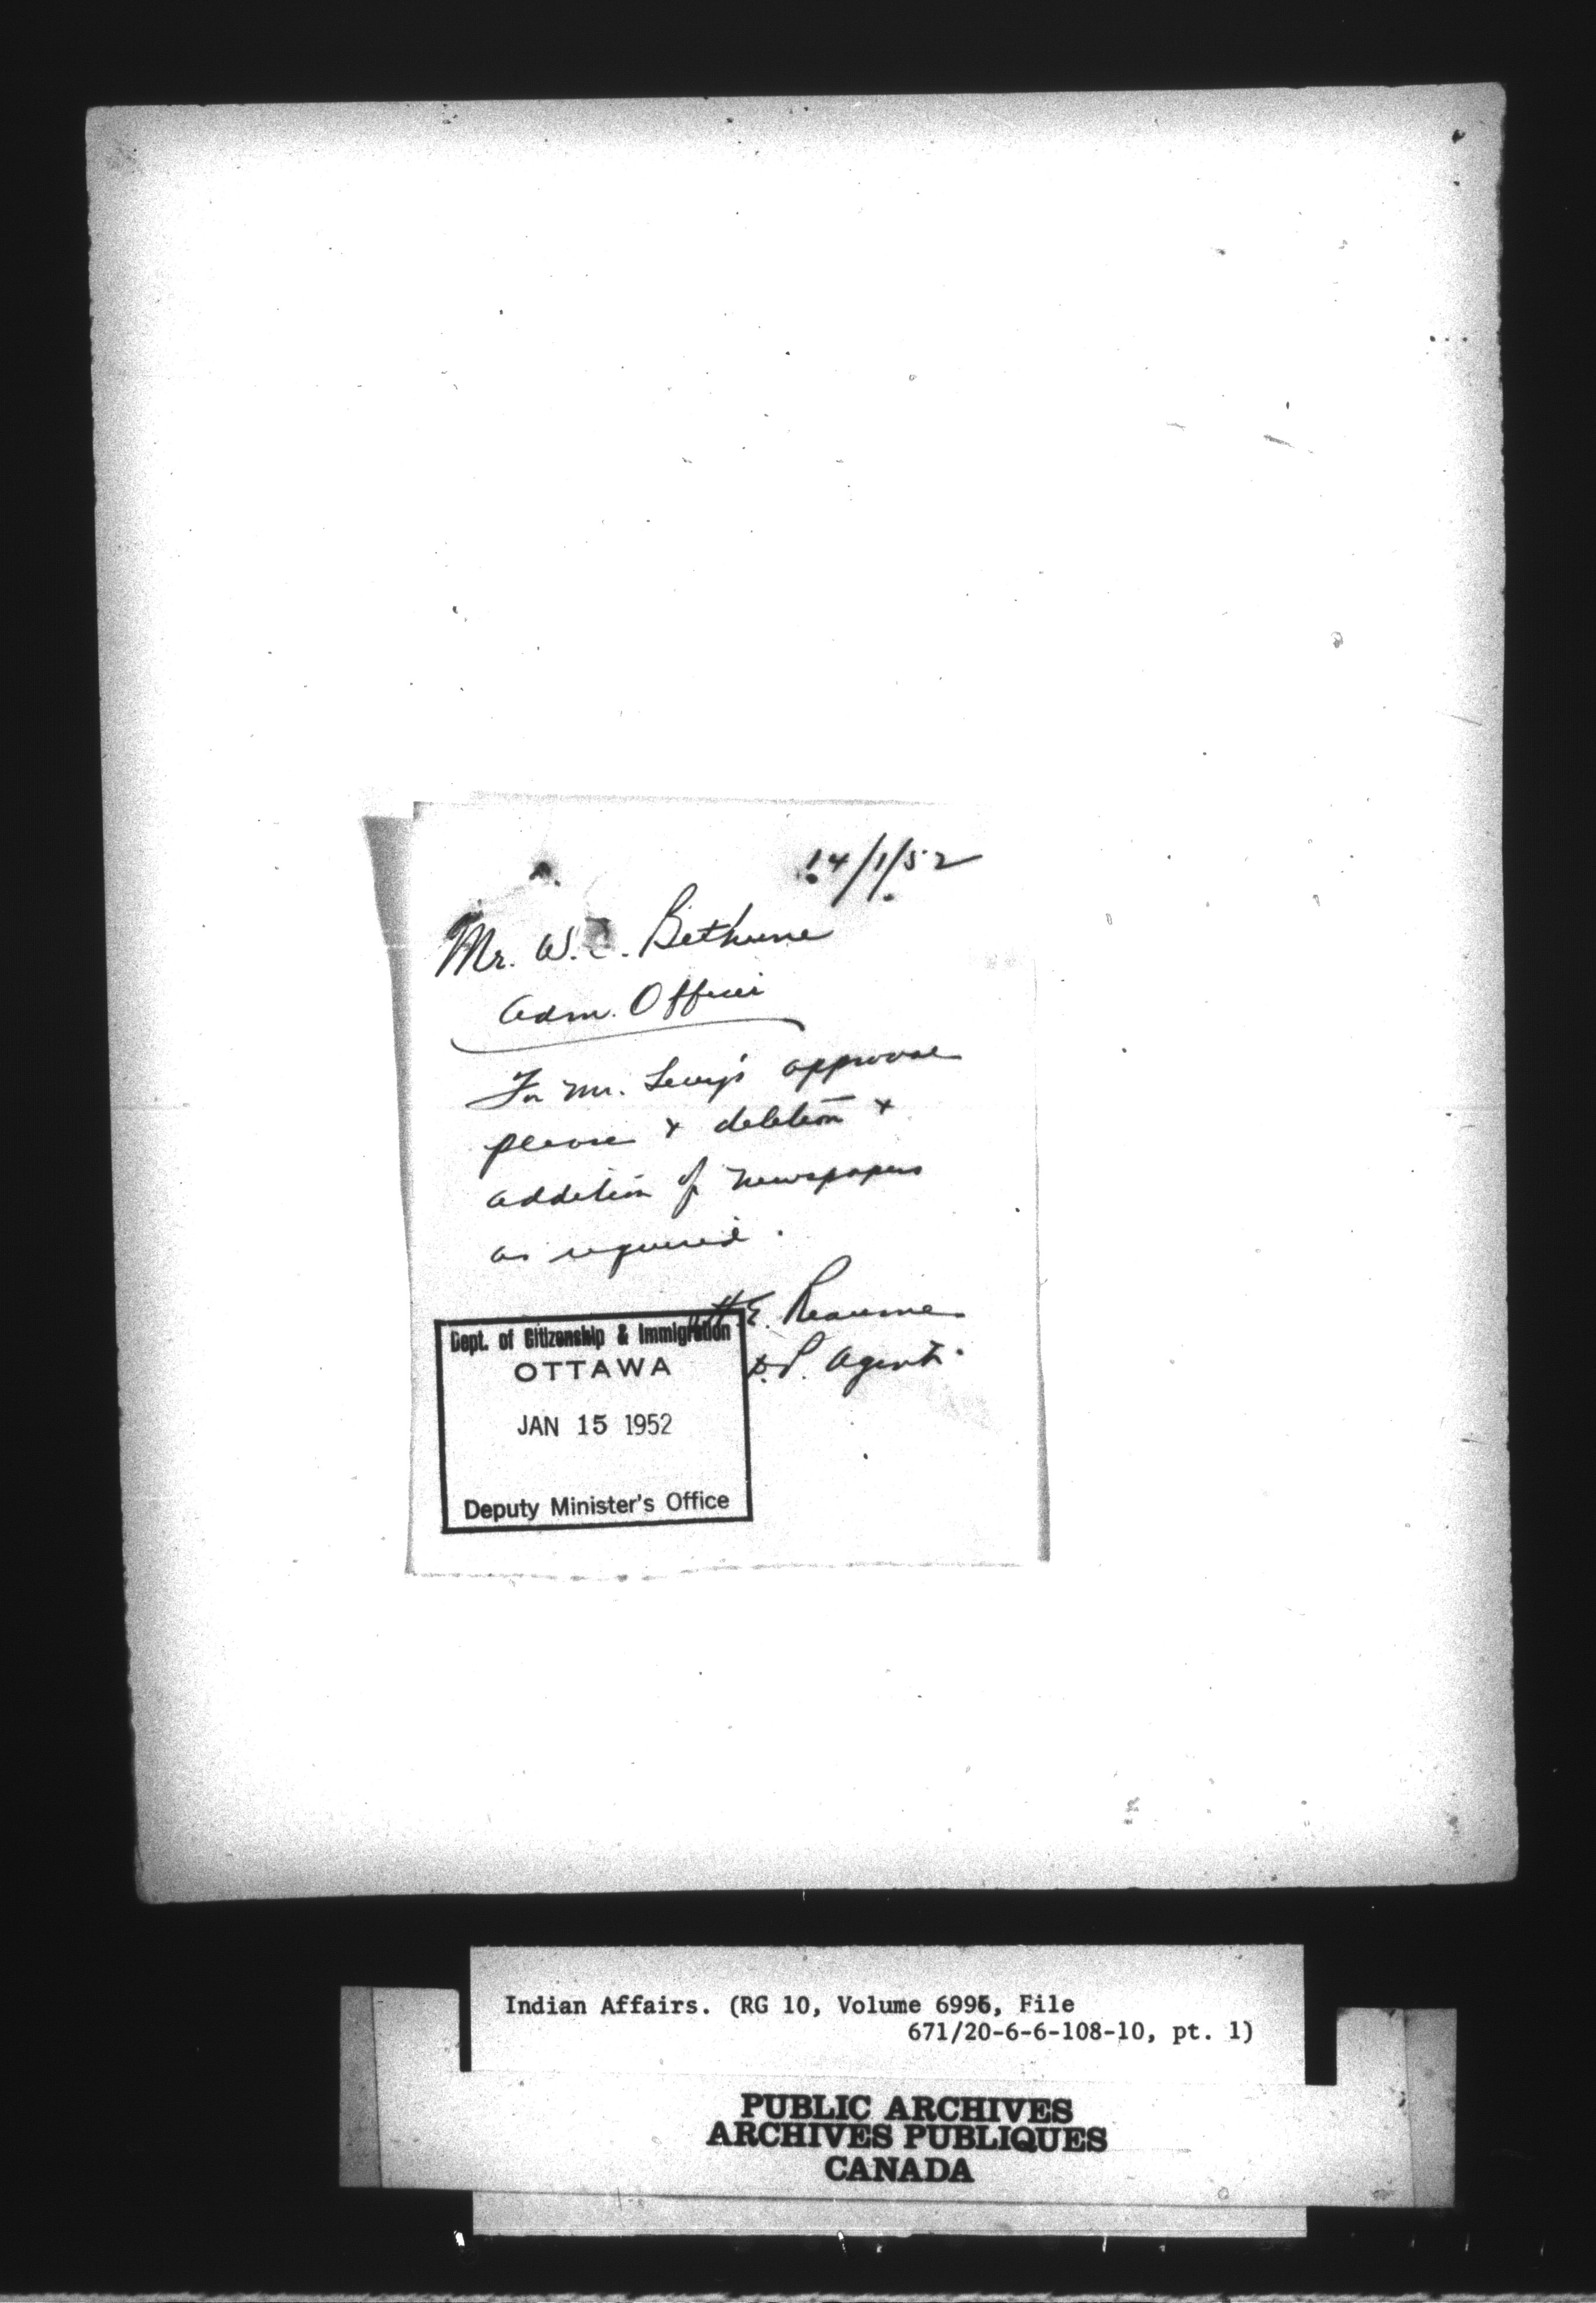 14/1/52
Mr. W. C. Bethune
Adm. Officer
For Mr. approval
please & deletion &
addition of newspapers
as required.
H.E. Reaume
D.P. Agent.
Dept. of Citizenship & Immigration
OTTAWA
JAN 15 1952
Deputy Minister's Office
Indian Affairs. (RG 10, Volume 6996, File
671/20-6-6-108-10, pt. 1)
PUBLIC ARCHIVES
ARCHIVES PUBLIQUES
CANADA